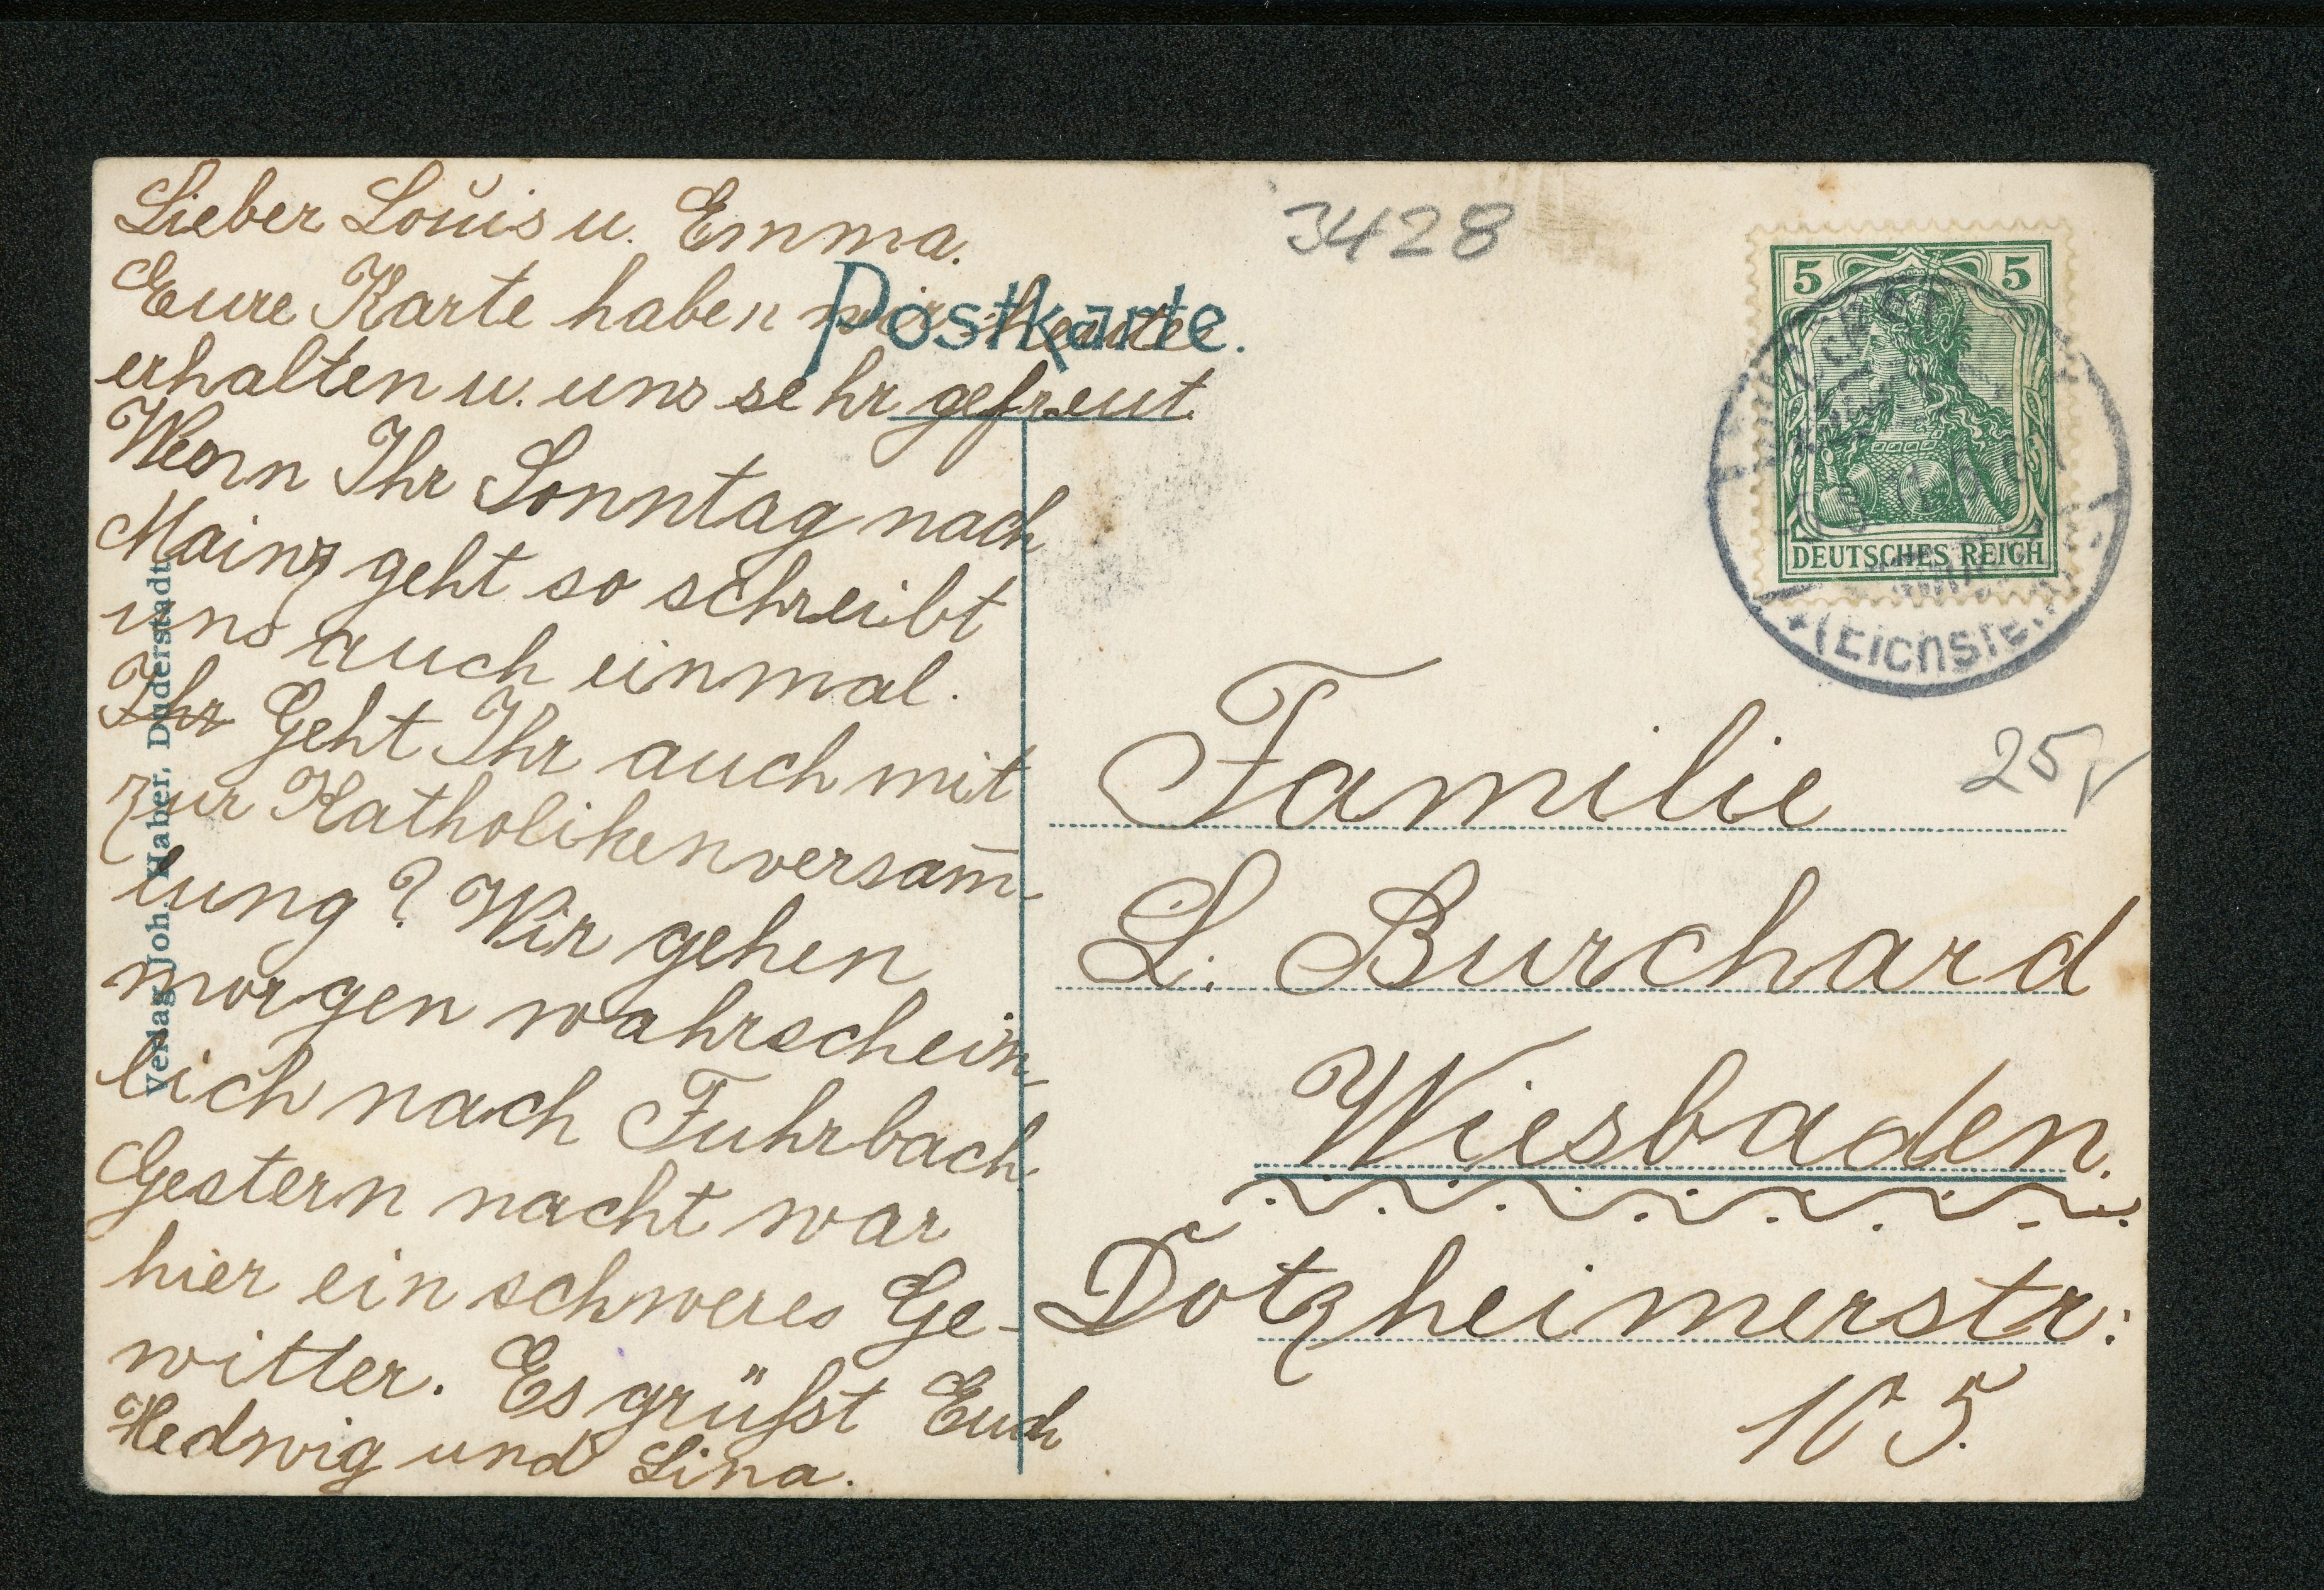 Lieber Louis u. Emma.
Eure Karte haben wir heute
erhalten u. uns sehr gefreut.
Wenn Ihr Sonntag nach
Mainz geht so schreibt
uns auch einmal.
Ihr Geht Ihr auch mit
zur Katholikenversam̄-
lung? Wir gehen
morgen wahrschein-
lich nach Fuhrbach.
Gestern nacht war
hier ein schweres Ge-
witter. Es grüßt Euch
Hedwig und Lina.
Verlag Joh. Haber, Duderstadt.
Postkarte.
3428
5 5
DEUTSCHES REICH
(EICHSFELD)
25
Familie
L. Burchard
Wiesbaden.
Dotzheimerstr:
105.